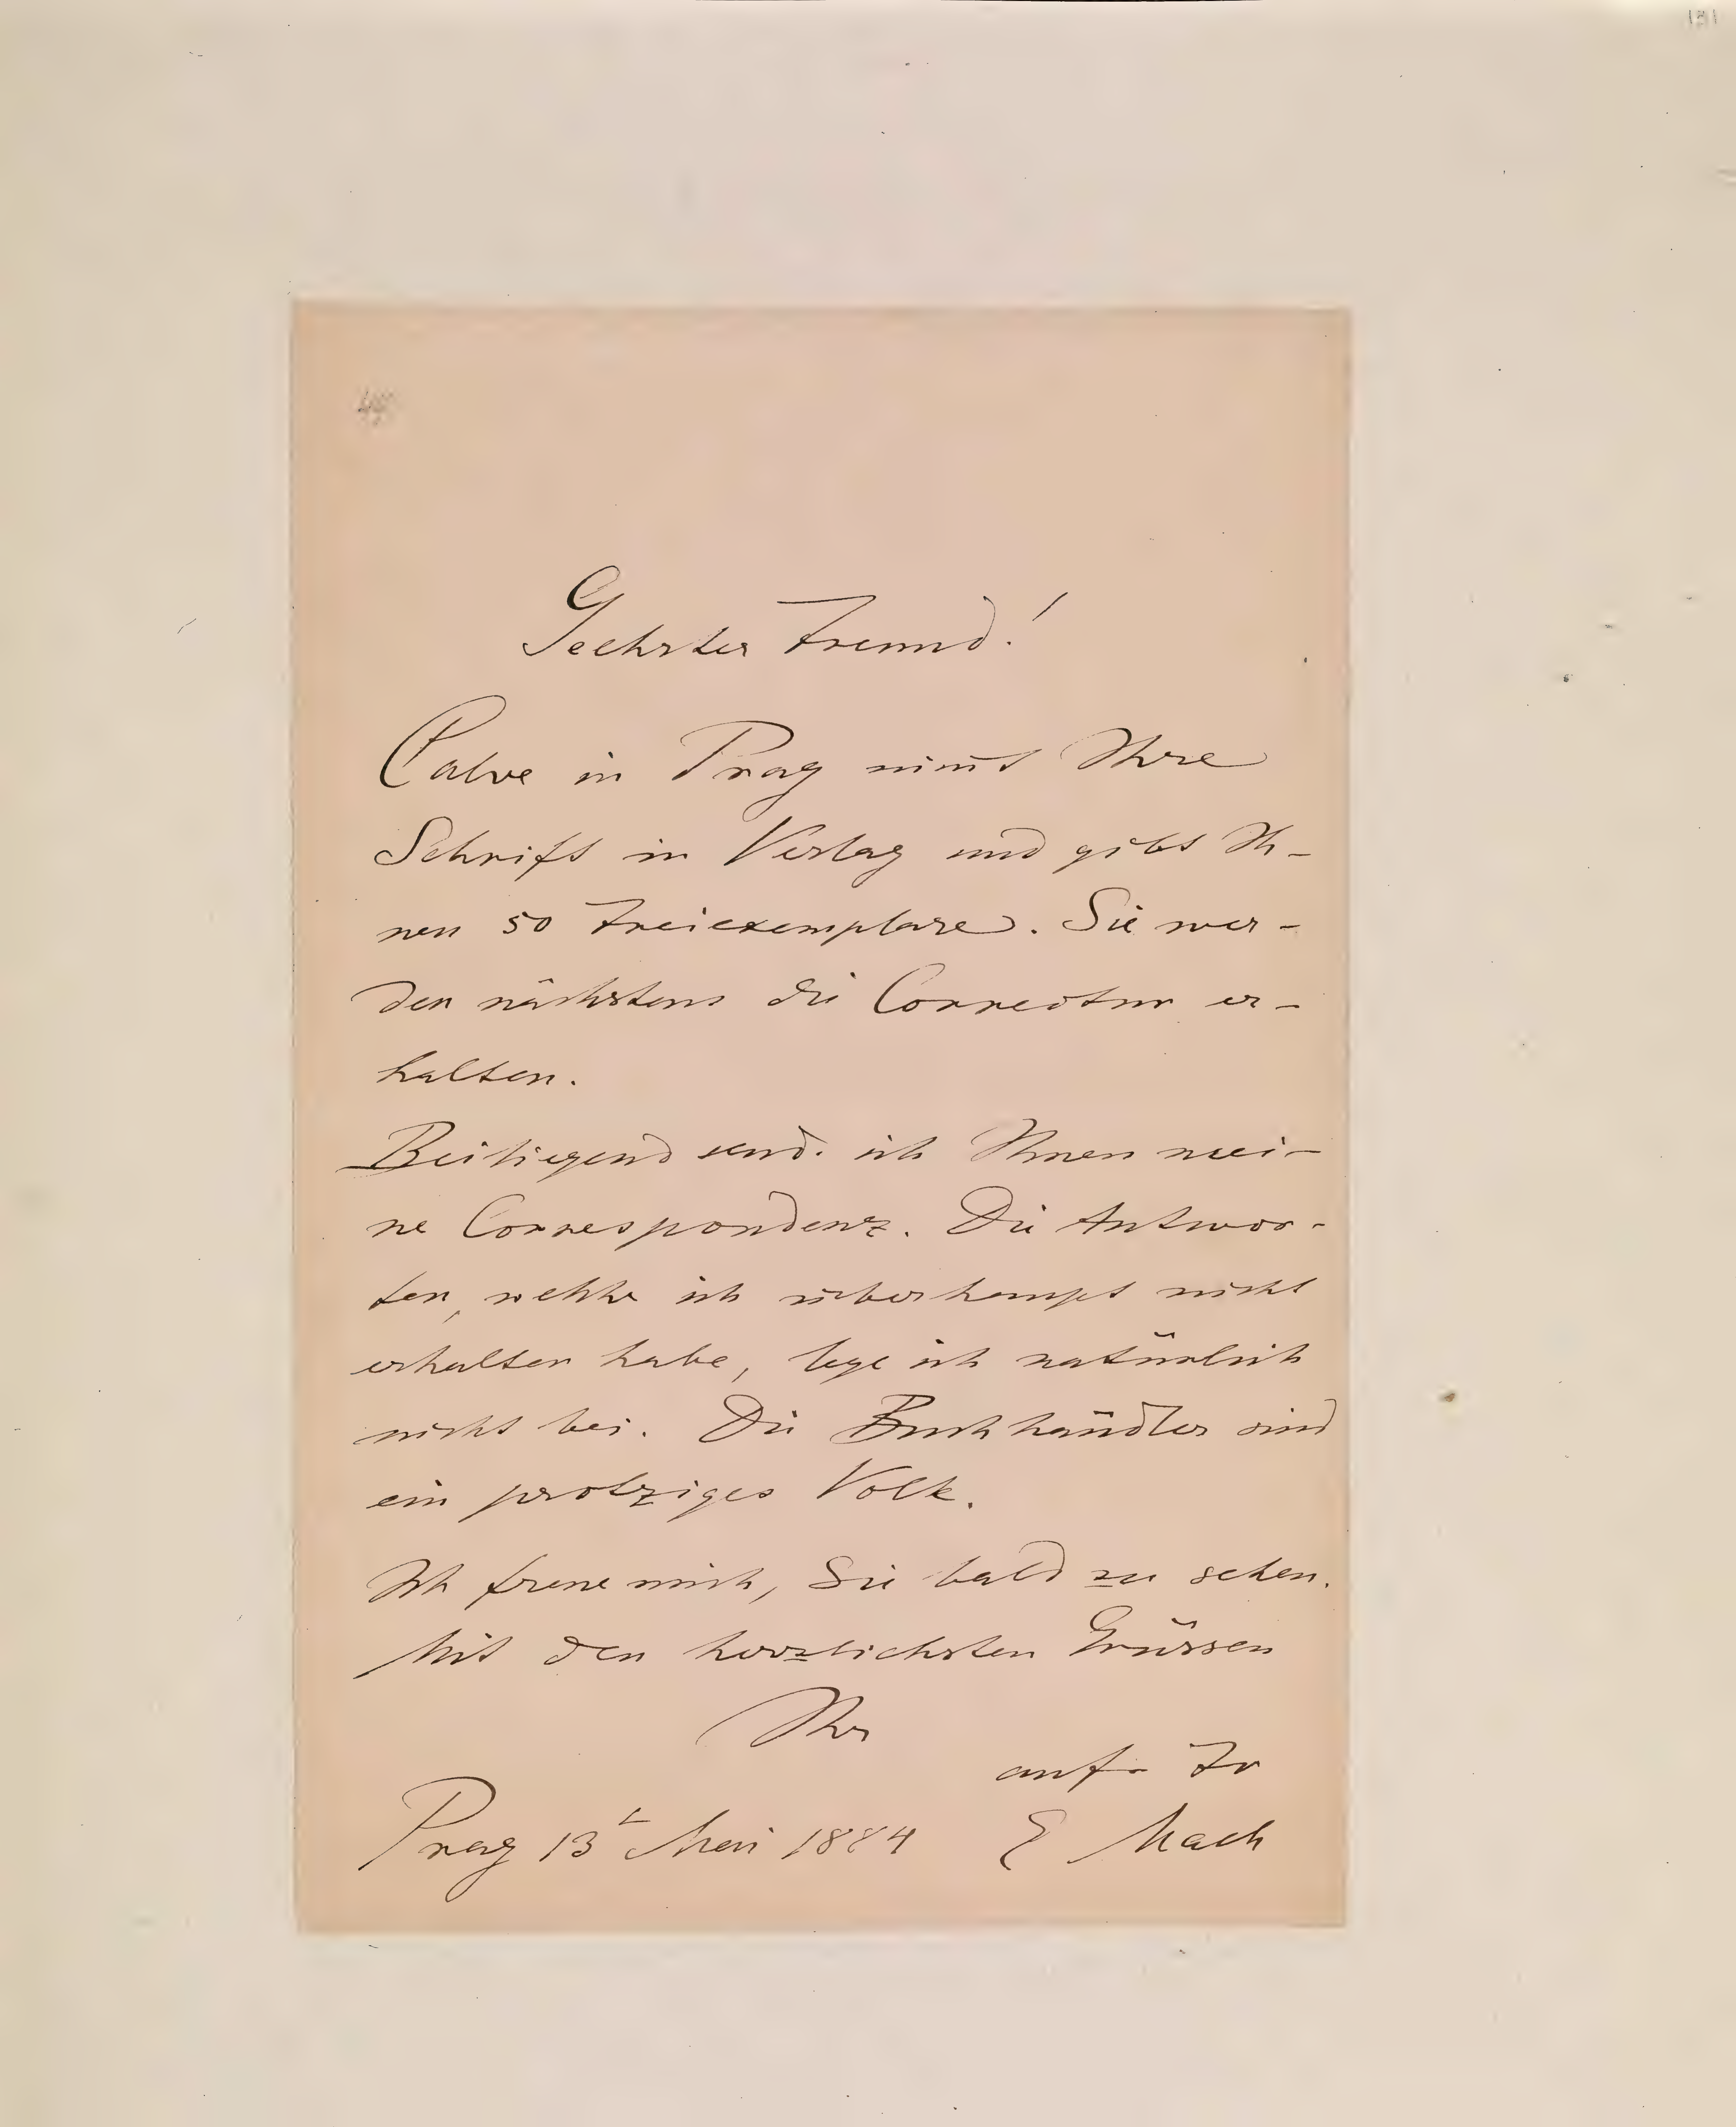 131
Geehrter Freund!
Calve in Prag nim̄t Ihre
Schrift in Verlag und gibt Ih-
nen 50 Freiexemplare. Sie wer-
den nächstens die Correctur er-
halten.
Beiliegend send. ich Ihnen mei-
ne Correspondenz. Die Antwor-
ten, welche ich überhaupt nicht
erhalten habe, lege ich natürlich
nicht bei. Die Buchhändler sind
ein protziges Volk.
Ich freue mich, Sie bald zu sehen.
Mit den herzlichsten Grüssen
Ihr
aufr Fr
Prag 13t Mai 1884 E Mach